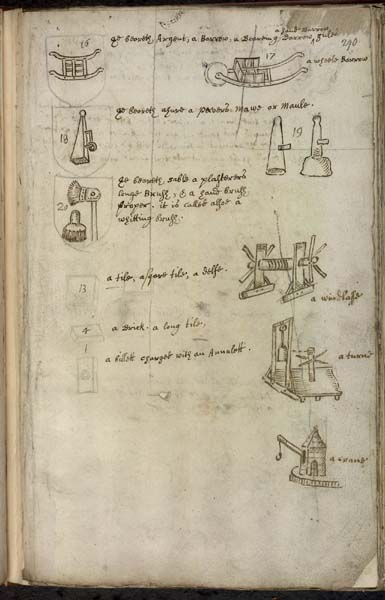 a hand Barrow,
16 He beareth Argent, a Barrow, a Bearing Barrow, Gules
290
17
a wheele Barrow
He beareth azure a pavers Mawe or Maule.
18
19
He beareth sable a plasterers
longe Brush, & a hand brush
proper. it is called alsoe a
20
whitting brush.
13 a tile, a square tile, a delfe.
a windlasse
4 a Brick. a long tile,
1
a billett charged with an Annulett.
a turne
a crane